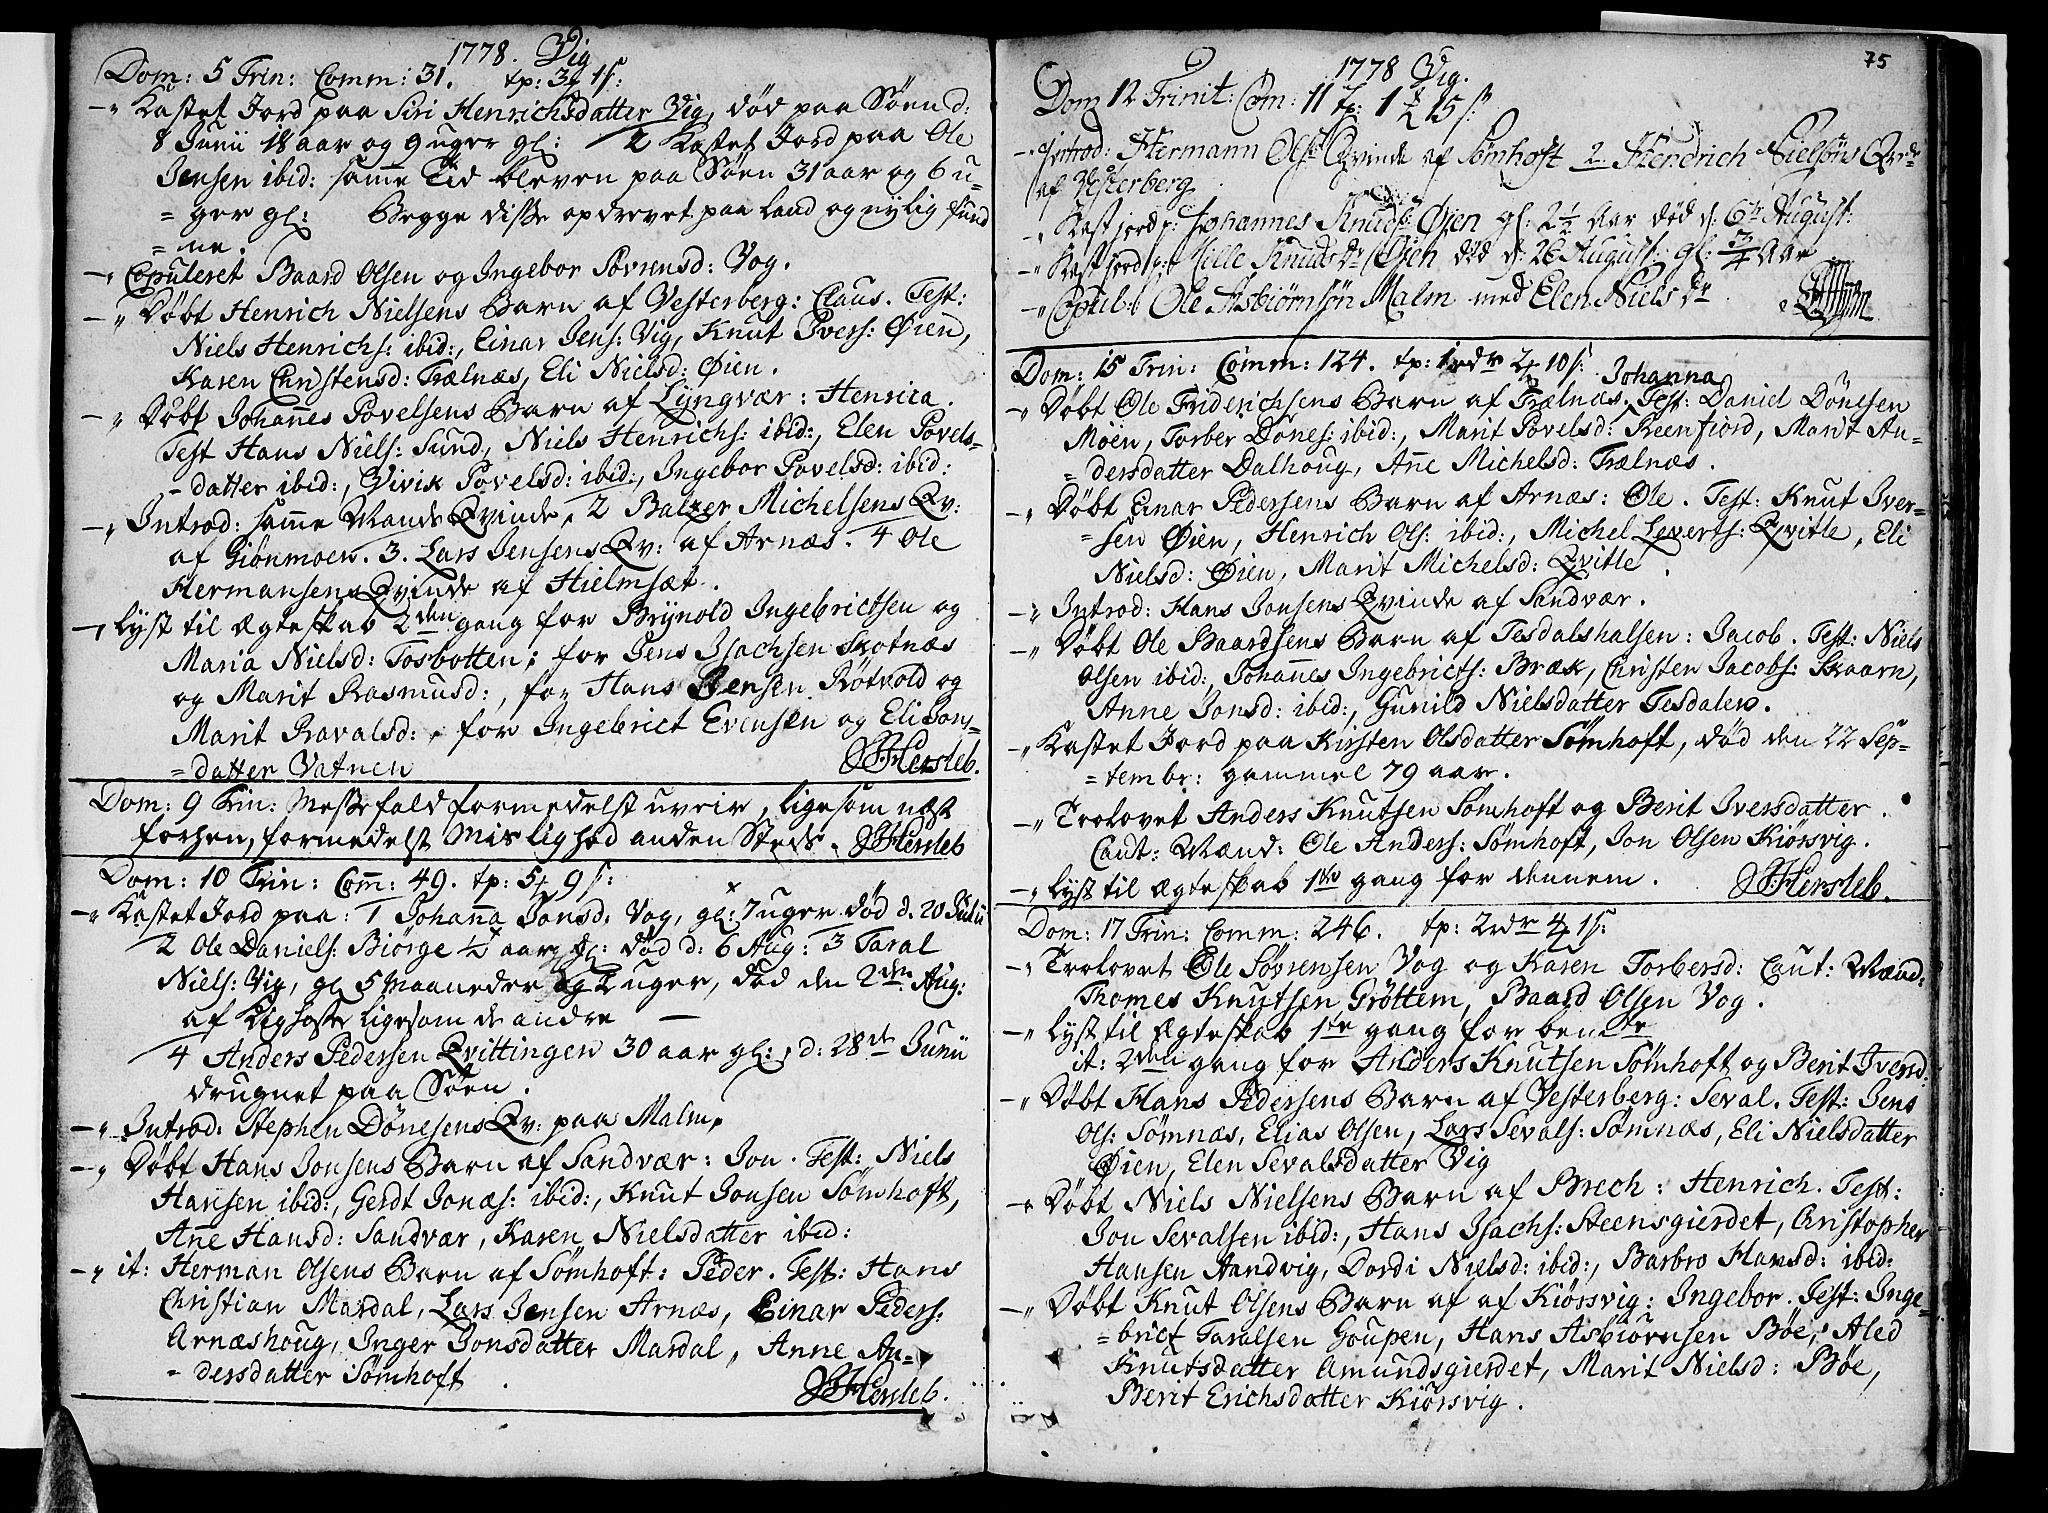 1778. Vig
Dom: 5 Trin: Comm: 31. tp: 3 1 s:
Kastet Jord paa Siri Henrichsdatter Vig, død paa Søen d:
8 Junii 18 aar og 9 uger gl: 2 Kastet Jord paa Ole
Jensen ibid: samme Tid bleven paa Søen 31 aar og 6 u-
=ger gl: Begge disse opdrevet paa Land og nylig fund
=ne.
Copuleret Baard Olsen og Ingebor Sørensd: Vog.
Døbt Henrich Nielsens Barn af Vesterberg: Claus. Test:
Niels Henrichs: ibid:, Einar Jens: Vig, Knut Ivers: Øien,
Karen Christensd: Trælnæs, Eli Nielsd: Øien.
Døbt Johannes Povelsens Barn af Lyngvær: Henrica.
Test Hans Niels: Sund, Niels Henrichs: ibid:, Elen Povels-
-datter ibid:, Vivik Povelsd: ibid:, Ingebor Povelsd: ibid:
Introd: samme Mands Qvinde, 2 Baltzer Michelsens Qv:
af Giønmoen. 3. Lars Jensens Qv: af Arnæs. 4 Ole
Hermansens Qvinde af Hielmsæt.
Lyst til Ægteskab 2den gang for Brynold Ingebrictsen og
Maria Nielsd: Tosbotten; for Jens Isachsen Skotnæs
og Marit Rasmusd:, for Hans Jensen Røtvold og
Marit Ravalsd:, for Ingebrict Evensen og Eli Jons-
=datter Vatnen JHersleb.
Dom: 9 Trin: Messefald formedelst uveir, ligesom næst
forhen, formedelst Mislighed anden Steds. JHersleb
Dom: 10 Trin: Com: 49. tp: 5 9 s:
Kastet Jord paa: 1 Johanna Jonsd: Vog, gl: 7 uger død d. 20 Julii
2 Ole Daniels: Biørge ½ aar gl: død d: 6 Aug: 3 Taral
Niels: Vig, gl 5 Maaneder og 2 uger, død den 2den Aug:
af Kighoste ligesom de andre
4 Anders Pedersen Qvittingen 30 aar gl:, d: 28de Junii
drugnet paa Søen.
Introd: Stephen Dønesens Qv: paa Malm.
Døbt Hans Jonsens Barn af Sandvær: Jon. Test: Niels
Hansen ibid:, Gerdt Jonæs: ibid:, Knut Jonsen Sømhoft,
Ane Hansd: Sandvær, Karen Nielsdatter ibid:
it: Herman Olsens Barn af Sømhoft: Peder. Test: Hans
Christian Mardal, Lars Jensen Arnæs, Einar Peders:
Arnæshoug, Inger Jonsdatter Mardal, Anne An-
-dersdatter Sømhoft.
JHersleb.
75
1778 Vig.
Dom 12 Trinit: Com: 11 tp: 1 15 s
jntrod: Hermann Ols: Qvinde af Sømhoft 2. Hendrich Nielsøns Qvde
af Vesterberg
Kast jord p: Johannes Knuds: Øjen gl: 2½ Aar død d: 6te August:
Kast jord p: Mille Knuds Dr Øjen død d: 26 August: gl: ¾ Aar
Copul: Ole Asbiørnsøn Malm med Elen Niels Dr
Dom: 15 Trin: Comm: 124. tp: 1 rdr 2 10 s:
Johanna
Døbt Ole Friderichsens Barn af Trælnæs. Test: Daniel Dönesen
Moen, Torber Dönes: ibid:, Marit Povelsd: Reenfiord, Marit An-
=dersdatter Dalhoug, Ane Michelsd: Trælnæs.
Døbt Einar Pedersens Barn af Arnæs: Ole. Test: Knut Iver-
=sen Øien, Henrich Ols: ibid:, Michel Leverts: Qvitle, Eli
Nielsd: Øien, Marit Michelsd: Qvitle.
Introd: Hans Jonsens Qvinde af Sandvær.
Døbt Ole Baardsens Barn af Tesdalshalsen: Jacob. Test: Niels
Olsen ibid:, Johannes Ingebricts: Bræk, Christen Jacobs: Skaarn,
Anne Jonsd: ibid:, Gunild Nielsdatter Tesdalen.
Kastet Jord paa Kirsten Olsdatter Sømhoft, død den 22 Sep-
=tembr: gammel 79 aar.
Trolovet Anders Knutsen Sømhoft og Berit Iversdatter.
Caut: Mænd: Ole Anders: Sømhoft, Jon Olsen Kiørsvig.
Lyst til Ægteskab 1ste gang for dennem. JHersleb.
Dom: 17 Trin: Comm: 246. tp: 2 rdr 4 1 s:
Trolovet Ole Søvrensen Vog og Karen Torbersd: Caut: Mænd:
Thomes Knutsen Grøttem, Baard Olsen Vog.
Lyst til Ægteskab 1ste gang for bemte
it: 2den gang for Anders Knutsen Sømhoft og Berit Iversd:
Døbt Hans Pedersens Barn af Vesterberg: Seval. Test: Jens
Ols: Sømnæs, Elias Olsen, Lars Sevals: Sømnæs, Eli Nielsdatter
Øien, Elen Sevalsdatter Vig
Døbt Niels Nielsens Barn af Brech: Henrich. Test:
Jon Sevalsen ibid:, Hans Isachs: Steensgierdet, Christopher
Hansen Aandvig, Dordi Nielsd: ibid:, Barbro Hansd: ibid:
Døbt Knut Olsens Barn af af Kiørsvig: Ingebor. Test: Inge-
=brict Taralsen Goupen, Hans Asbiørnsen Bøe, Aled
Knutsdatter Amundsgierdet, Marit Nielsd: Bøe,
Berit Erichsdatter Kiørsvig.